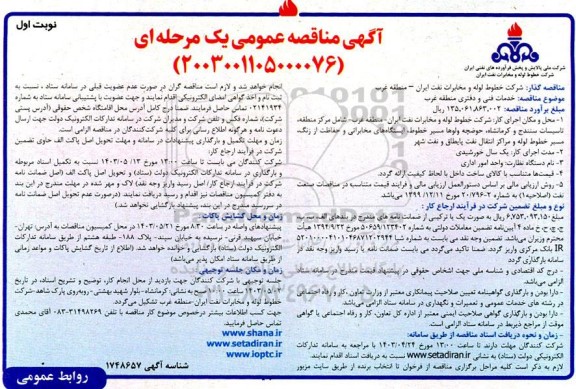 نوبت اول
آگهی مناقصه عمومی یک مرحله ای
(۲۰۰۳۰۰۱۱۰۵۰۰۰۰۷۶)
شرکت ملی پالایش و پخش فرآورده های نفتی ایران
شرکت خطوط لوله و مخابرات نفت ایران
مناقصه گذار: شرکت خطوط لوله و مخابرات نفت ایران – منطقه غرب
موضوع مناقصه: خدمات فنی و دفتری منطقه غرب
مبلغ برآورد مناقصه: ۱۳۵,۰۶۱,۸۶۳,۰۰۲ ریال
۱- محل و مکان اجرای کار: شرکت خطوط لوله و مخابرات نفت ایران - منطقه غرب- شامل مرکز منطقه،
تاسیسات سنندج و کرمانشاه، حوضچه ولوها مسیر خطوط، ایستگاههای مخابراتی و حفاظت از زنگ،
مسیر خطوط لوله و مراکز انتقال نفت پایطاق و نفت شهر
۲- مدت اجرای کار: یک سال خورشیدی
۳- نام دستگاه نظارت: واحد امور اداری
۴- قیمت‌ها متناسب با کالای ساخت داخل با لحاظ کیفیت ارائه گردد.
۵- روش ارزیابی مالی بر اساس دستورالعمل ارزیابی مالی و فرآیند قیمت متناسب در مناقصات صنعت
نفت (اصلاحیه۱) به شماره ۲-۲۰/۷۹۶ مورخ ۱۳۹۹/۱۲/۱۱ می باشد.
نوع و مبلغ تضمین شرکت در فرآیند ارجاع کار :
۶,۷۵۳,۰۹۳,۱۵۰ ریال به صورت یک یا ترکیبی از ضمانت نامه های مندرج در بندهای الف، ب،
پ، ج، چ، ح ماده ۴ آیین‌نامه تضمین معاملات دولتی به شماره ۱۲۳۴۰۲/ت۵۰۶۵۹ه مورخ ۱۳۹۴/۹/۲۲ هیأت
محترم وزیران میباشد.
IR بانک مرکزی واریز گردد.
سامانه بارگذاری گردد
- درج کد اقتصادی و شناسه ملی جهت اشخاص حقوقی در پیشنهاد قیمت مندرج در سامانه ستاد
الزامی می‌باشد.
- دارا بودن و بارگذاری گواهینامه تعیین صلاحیت پیمانکاری معتبر از وزارت تعاون، کار و رفاه اجتماعی
در رشته های خدمات عمومی و تعمیرات و نگهداری در سامانه ستاد الزامی می‌باشد.
- دارا بودن و بارگذاری گواهی صلاحیت ایمنی معتبر از اداره کل تعاون، کار و رفاه اجتماعی یا گواهی
موقت از مراجع ذیربط در سامانه ستاد الزامی است.
- زمان و نحوه دریافت اسناد مناقصه از طریق سامانه:
شرکت کنندگان مهلت دارند تا ساعت ۱۳:۰۰ مورخ ۱۴۰۳/۰۴/۲۴ با مراجعه به سامانه تدارکات
الکترونیکی دولت (ستاد) به نشانی www.setadiran.ir نسبت به دریافت اسناد اقدام نمایند.
لازم به ذکر است کلیه مراحل برگزاری مناقصه از فراخوان تا انتخاب برنده از طریق سایت مزبور
انجام خواهد شد و لازم است مناقصه گران در صورت عدم عضویت قبلی در سامانه ستاد ، نسبت به
ثبت نام و اخذ گواهی امضای الکترونیکی اقدام نمایند و جهت عضویت با پشتیبانی سامانه ستاد به شماره
۰۲۱۴۱۹۳۴ تماس حاصل فرمایند. ضمناً درج کامل آدرس محل اقامتگاه شخص حقوقی (آدرس پستی
شرکت)، شماره فکس و تلفن شرکت و مدیران شرکت در سامانه تدارکات الکترونیک دولت جهت ارسال
دعوت نامه و هرگونه اطلاع رسانی برای کلیه شرکت‌کنندگان در مناقصه الزامی است.
زمان و مهلت تکمیل و بارگذاری پیشنهادات در سامانه و مهلت تحویل اصل پاکت الف تضمین
شرکت در فرآیند ارجاع کار:
شرکت کنندگان می بایست تا ساعت ۱۳:۰۰ مورخ ۱۴۰۳/۰۵/۱۳ نسبت به تکمیل اسناد مربوطه
و بارگذاری در سامانه تدارکات الکترونیکی دولت (ستاد) و تحویل اصل پاکت الف (اصل ضمانت نامه
شرکت در فرآیند ارجاع کار/اصل رسید واریز وجه نقد) لاک و مهر شده در مهلت مندرج در این بند
به دفتر کمیسیون مناقصات نیز اقدام و رسید دریافت نمایند (درصورت عدم تحویل اصل ضمانت نامه
در سررسید مندرج در این بند، پیشنهاد بازگشایی نخواهد شد)
زمان و محل گشایش پاکات:
پیشنهادهای واصله در ساعت ۸:۳۰ مورخ ۱۴۰۳/۰۵/۲۱ در محل کمیسیون مناقصات به آدرس تهران-
خیابان سپهبد قرنی- نرسیده به خیابان سپند- پلاک ۱۸۸- طبقه هشتم و از طریق سامانه تدارکات
الکترونیک دولت (ستاد) بازگشایی و خوانده خواهد شد. (اطلاع از تاریخ گشایش پاکات و مواعد زمانی
از طریق سامانه ستاد امکان پذیر می‌باشد)
زمان و مکان جلسه توجیهی
جلسه توجیهی با شرکت کنندگان جهت بازدید از محل انجام کار، توضیح و تشریح اسناد، در تاریخ
خطوط لوله و مخابرات نفت ایران-منطقه غرب تشکیل می‌گردد.
جهت کسب اطلاعات بیشتر درخصوص موضوع کار مناقصه با تلفن ۳۱۴۹۸۲۶۹-۰۸۳ آقای محمدی
تماس حاصل فرمایید.
www.shana.ir
www.setadiran.ir
www.ioptc.ir
شناسه آگهی ۱۷۴۸۶۵۷
روابط عمومی